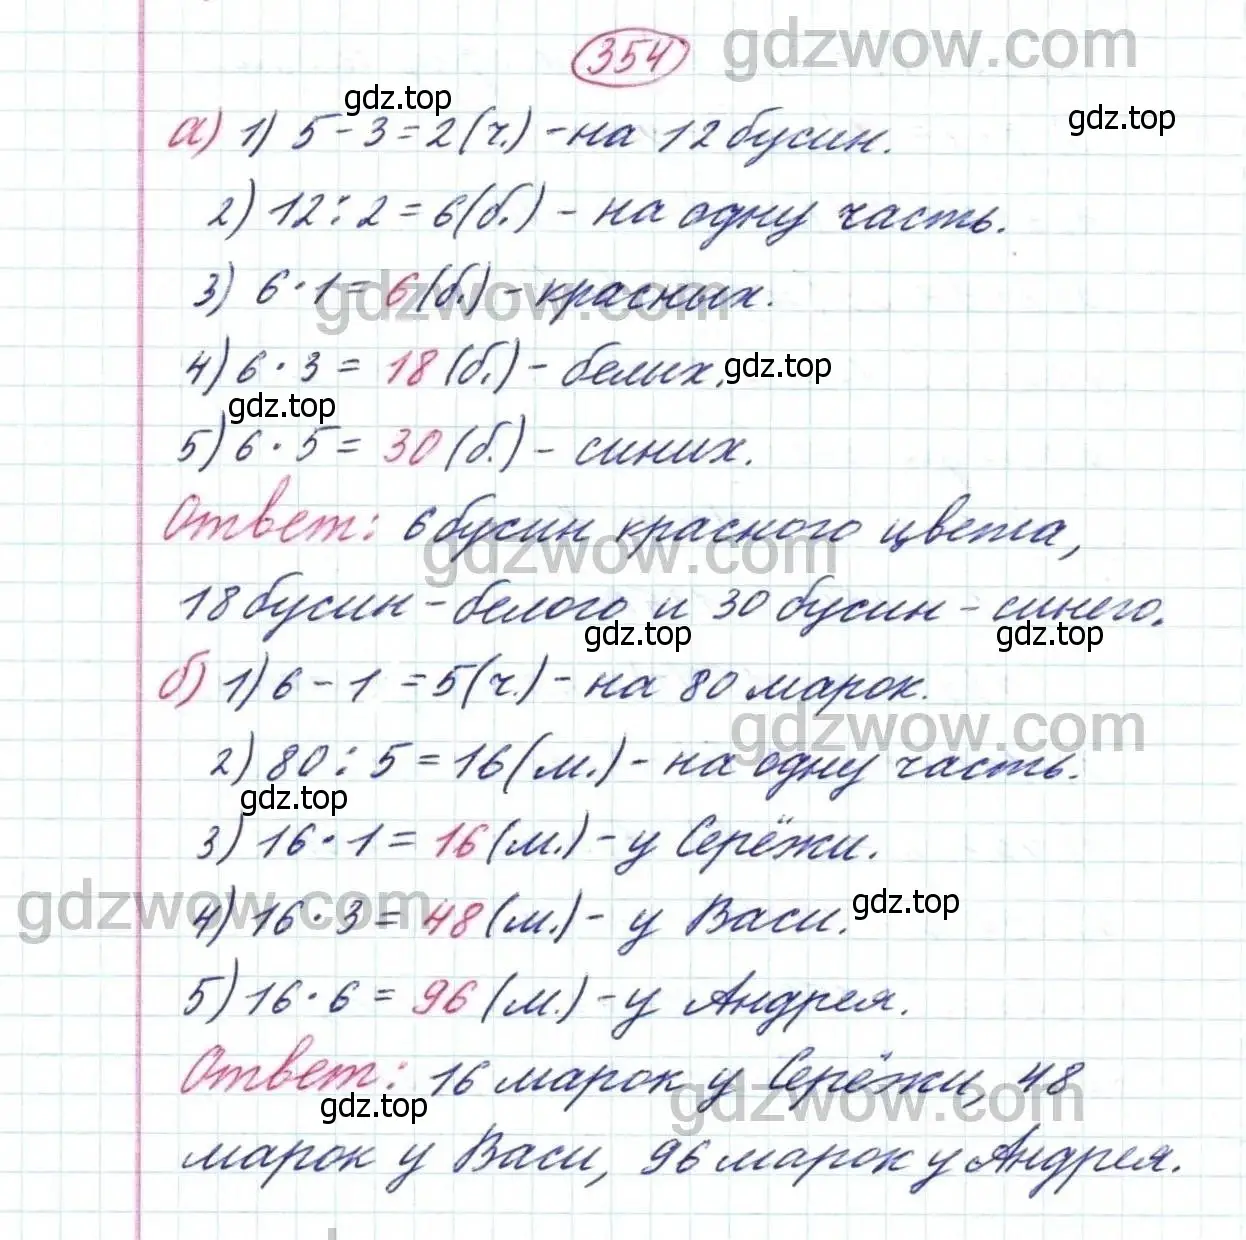 354
gdzwow.com
gdz.top
gdz.top
а) 1) 5 - 3 = 2 (ч.) - на 12 бусин.
2) 12 : 2 = 6 (б.) - на одну часть.
3) 6 · 1 = 6 (б.) - красных.
gdzwow.com
4) 6 · 3 = 18 (б.) - белых.
gdz.top
gdz.top
5) 6 · 5 = 30 (б.) - синих.
Ответ: 6 бусин красного цвета,
gdzwow.com
18 бусин - белого и 30 бусин - синего.
gdz.top
gdz.top
б) 1) 6 - 1 = 5 (ч.) - на 80 марок.
gdzwow.com
2) 80 : 5 = 16 (м.) - на одну часть.
gdz.top
3) 16 · 1 = 16 (м.) - у Серёжи.
gdzwow.com
4) 16 · 3 = 48 (м.) - у Васи.
gdz.top
5) 16 · 6 = 96 (м.) - у Андрея.
Ответ: 16 марок у Серёжи, 48
gdz.top
gdzwow.com
марок у Васи, 96 марок у Андрея.